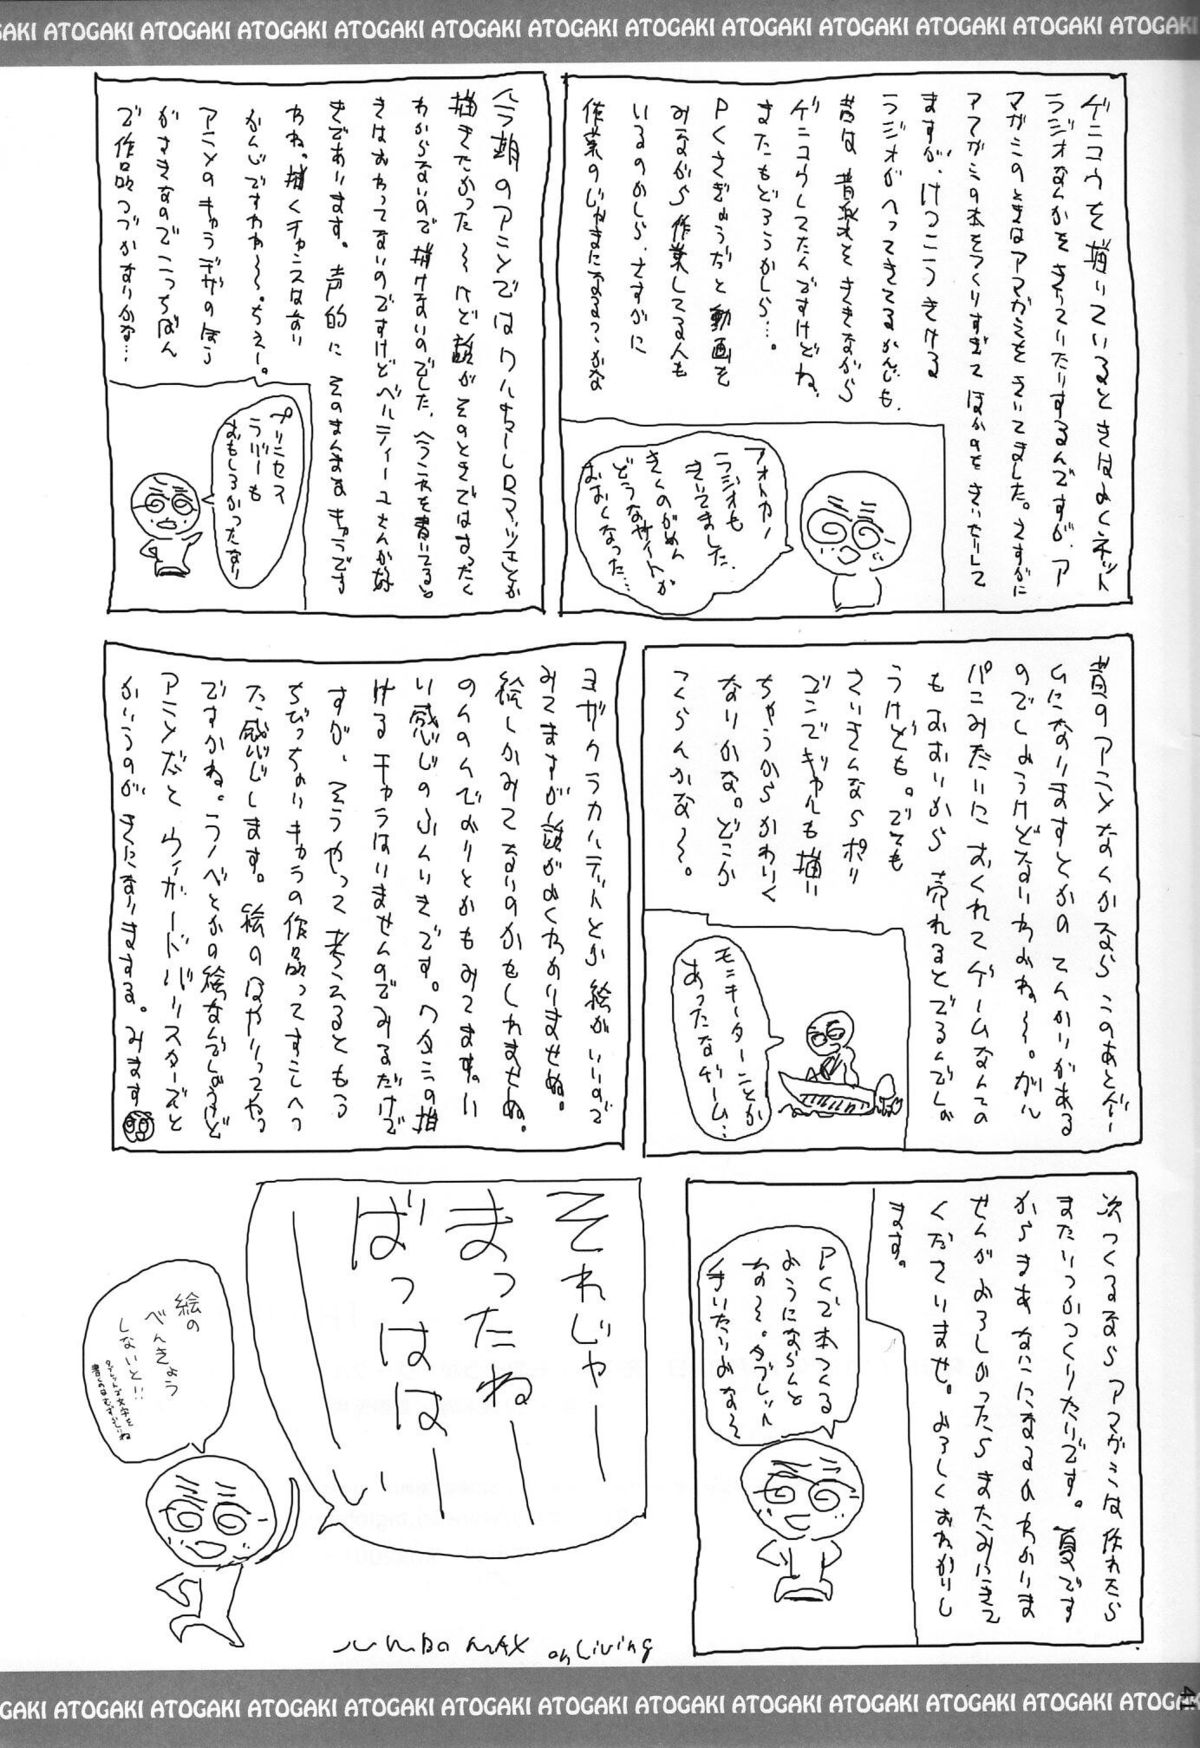 ATOGAKI ATOGAKI ATOGAKI ATOGAKI ATOGAKI ATOGAKI ATOGAKI ATOGAKI ATOGAKI ATOGAKI ATOGAKI ATOGAKI
ゲンコウを描いているときはよくネット
ラジオなんかをきいていたりするんですが、ア
マガミのときはアマガミをきいてました。さすがに
アマガミの本をつくりすぎてほかのをきいたりして
ますが、けっこうきける
ラジオがへってきてるかんじも、
昔は音楽をききながら
ゲンコウしてたんですけどね、
またもどろうかしら…。
PCさぎょうだと動画を
みながら作業してる人も
いるのかしら、さすがに
作業のじゃまになるっつかな
フォトカノ
ラジオも
きいてました、
きくのがめん
どうなサイトが
おおくなった…
今期のアニメではワルキューレロマンツェとか
描きたかった〜けど鎧がそのときではまったく
わからないので描けないのでした、
きはおわってないのですけどベルティーユさんが好
きであります。声的にそのまんまなキャラです
わね。描くチャンスはない
かんじですわね〜。ちぇー。
アニメのキャラデザのほう
がすきなのでこっちばん
で作品つづかないかな…
プリンセス
ラバーも
おもしろかったなり
昔のアニメなんかなら このあとゲー
ムになりますとかの てんかいがある
のでしょうけどないわよね〜。ガル
パンみたいに おくれてゲームなんての
もおおいから 売れるとでるんでしょ
うけども。でも
さいきんならポリ
ゴンでギャルも描い
ちゃうからかわいく
ないかな。どこか
つくらんかな〜。
モンキーターンとか
あったなゲーム…
ヨザクラカルテットとか 絵がいいので
みてますが話がよくわかいませぬ。
絵しかみてないのかもしれませぬ。
のんのんびよりとかもみてます。いい
い感じのふんいきです。ワタシの描
ける キャラはいませんのでみるだけで
すが、そうやって 考えるともう
ちびっちゃいキャラの作品ってすこしへっ
た感じします。絵のはやりってやつ
ですかね。ラノベとかの絵なんでしょうけど
アニメだと ウィザードバリスターズんと
かいうのが きになりまする。みます
次つくるなら アマガミは 作れたら
またいつかつくりたいです。夏です
からまあ なにになるのかわかりま
せんが よろしかったら またみにきて
くださいませ。よろしくおねがいし
ます。
PCで本つくる
ようにならんと
な〜。タブレット
きいたりよな〜
それじゃー
まったねー
ばっはは
ーい
絵の
べんきょう
しないと!!
タブレットで文字を
書くのはむずかしいね
JUMBO MAX on Living
41
ATOGAKI ATOGAKI ATOGAKI ATOGAKI ATOGAKI ATOGAKI ATOGAKI ATOGAKI ATOGAKI ATOGAKI ATOGAKI ATOGAKI